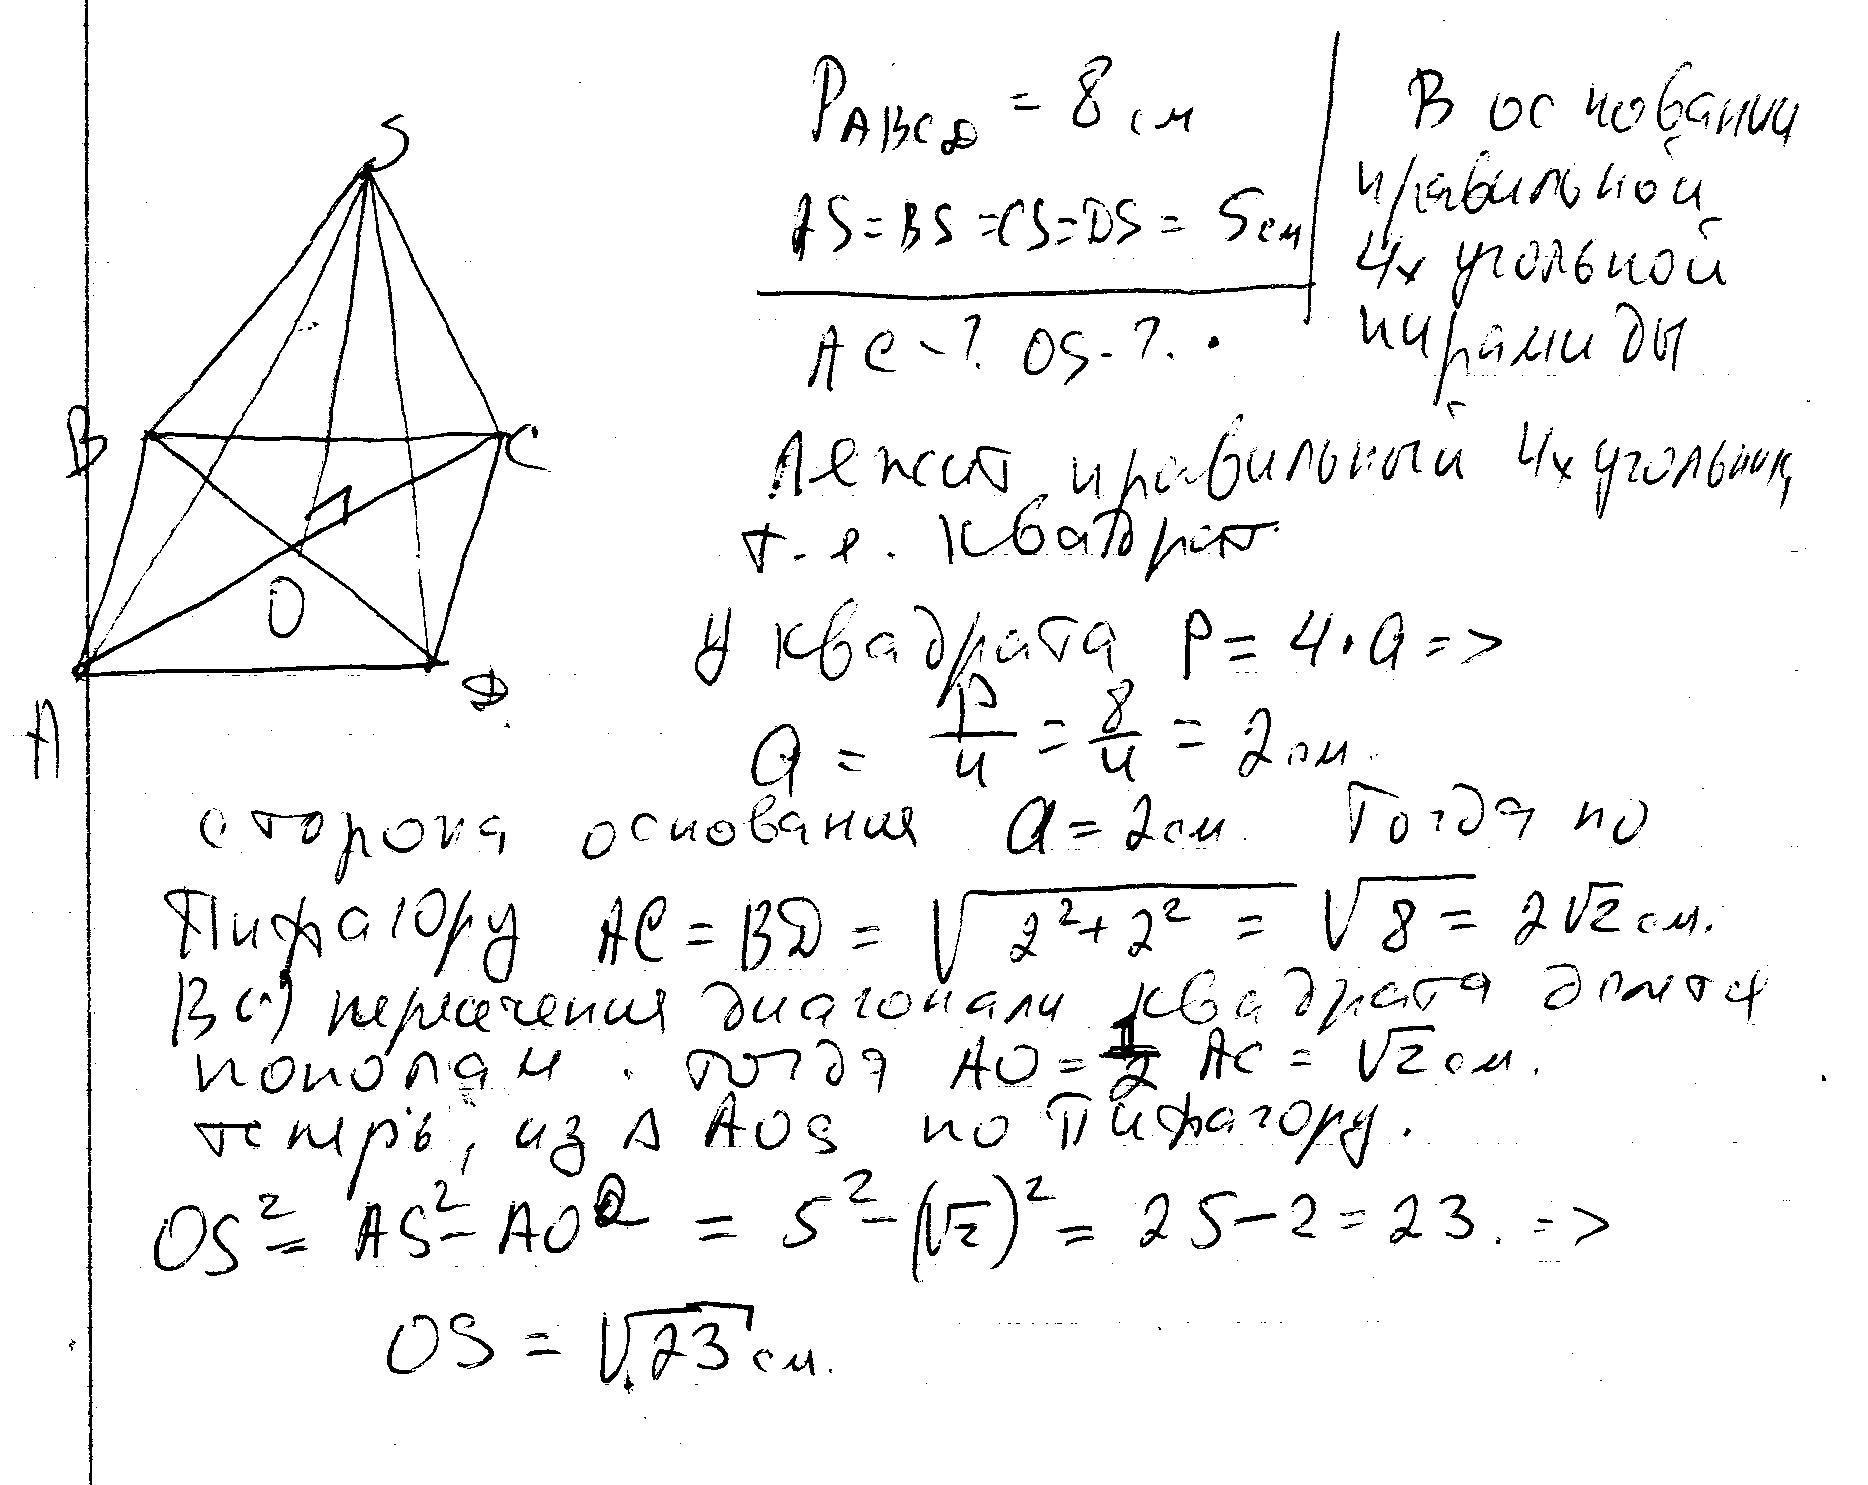 S
B
C
O
A
D
P ABCD = 8 см
AS = BS = CS = DS = 5 см
AC - ? OS - ?
В основании
правильной
4х угольной
пирамиды
лежит правильный 4х угольник,
т.е. квадрат
У квадрата P = 4·a =>
a = P/4 = 8/4 = 2 см.
сторона основания a = 2 см. Тогда по
Пифагору AC = BD = √(2² + 2²) = √8 = 2√2 см.
В (·) пересечения диагонали квадрата делятся
пополам. тогда AO = 1/2 AC = √2 см.
теперь, из Δ AOS по Пифагору.
OS² = AS² - AO² = 5² - (√2)² = 25 - 2 = 23. =>
OS = √23 см.